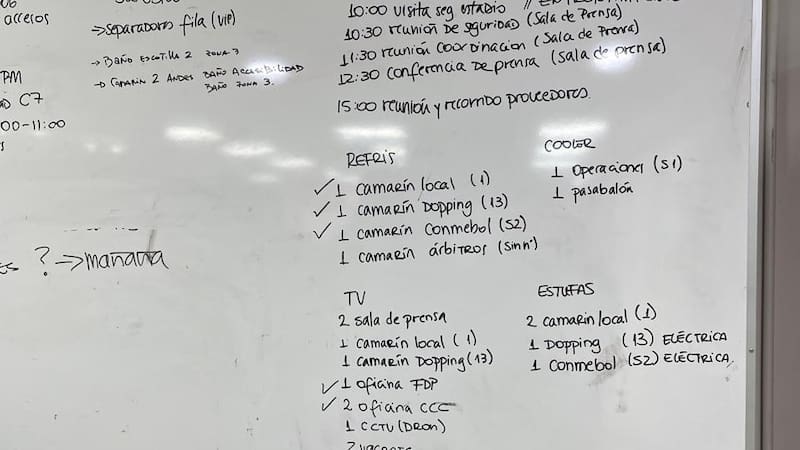 accesos
→ separadores fila (VIP)
→ BAÑO ESCOTILLA 2 ZONA 3
→ CAMARIN 2 ANDES BAÑO ACCESIBILIDAD
BAÑO ZONA 3.
PM
C7
00-11:00
? → mañana
10:00 visita seg estadio //
10:30 reunión de seguridad (Sala de Prensa)
11:30 reunión coordinación (Sala de Prensa)
12:30 conferencia de prensa (sala de prensa)
15:00 reunión y recorrido proveedores.
REFRIS
✓ 1 camarín local (1)
✓ 1 camarín Dopping (13)
✓ 1 camarín Conmebol (S2)
1 camarín árbitros (sinn°)
COOLER
1 operaciones (S1)
1 pasabalón
TV
2 sala de prensa
1 camarín local (1)
1 camarín Dopping (13)
✓ 1 oficina FDP
✓ 2 oficina CCC
1 CCTV (Dron)
ESTUFAS
2 camarin local (1)
1 Dopping (13) ELÉCTRICA
1 Conmebol (S2) ELÉCTRICA.